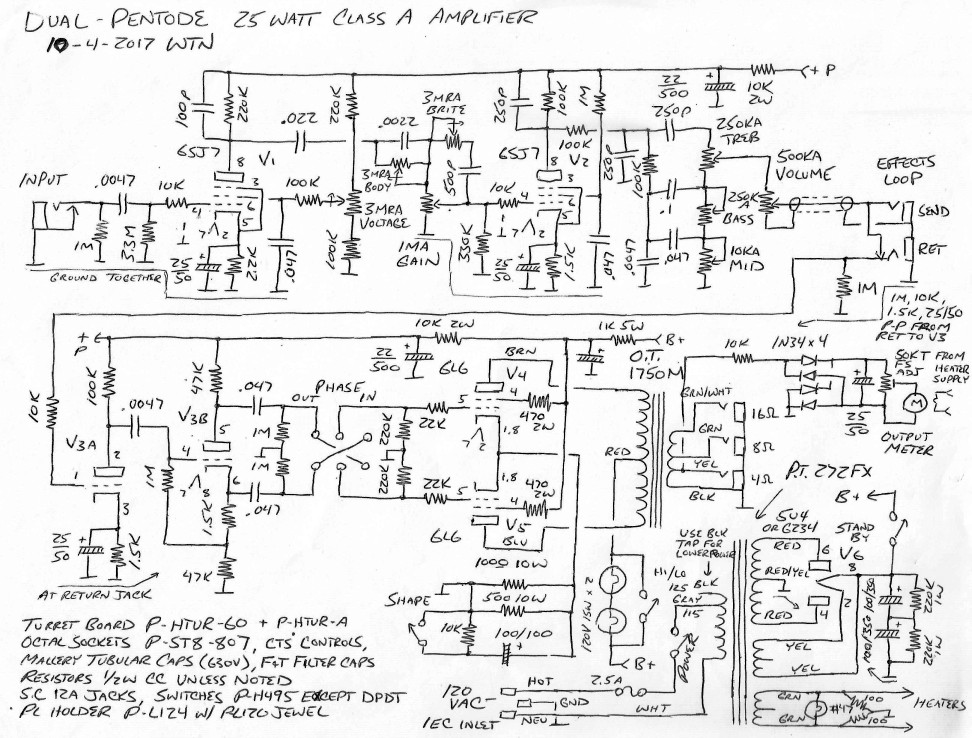 DUAL-PENTODE 25 WATT CLASS A AMPLIFIER
10-4-2017 WTN
100P
220K
.022
220K
.0022
3MRA
BRITE
250P
100K
1M
22
500
250P
10K
2W
+P
6SJ7
8
V1
3
6
5
4
2
7
3MRA
BODY
500P
6SJ7
8
V2
3
6
5
4
2
7
100K
250P
100K
250KA
TREB
500KA
VOLUME
EFFECTS
LOOP
INPUT
.0047
10K
1M
3.3M
25
50
2.2K
100K
.047
100K
3MRA
VOLTAGE
1MA
GAIN
10K
330K
25
50
1.5K
.047
.0047
.1
.047
250K
A
BASS
10KA
MID
SEND
RET
1M
GROUND TOGETHER
1M, 10K,
1.5K, 25/50
P-P FROM
RET TO V3
+
P
10K 2W
1K 5W
B+
10K
100K
.0047
47K
22
500
6L6
BRN
V4
O.T.
1750M
10K
1N34 x 4
50KT
FS
ADJ
FROM
HEATER
SUPPLY
M
25
50
OUTPUT
METER
V3A
2
1
3
25
50
1.5K
1M
V3B
5
4
6
7
8
1.5K
47K
.047
OUT
PHASE
IN
1M
1M
.047
220K
220K
22K
22K
5
4
470
2W
1,8
2
7
1,8
470
2W
5
4
V5
6L6
BLU
RED
GRN/WHT
16Ω
GRN
8Ω
YEL
4Ω
BLK
AT RETURN JACK
100Ω 10W
SHAPE
500 10W
10K
100/100
120V 15W x 2
B+
USE BLK
TAP FOR
LOWER POWER
HI/LO
125 BLK
GRAY
115
POWER
P.T. 272FX
5U4
OR GZ34
B+
STAND
BY
RED
6
V6
8
RED/YEL
4
2
RED
YEL
YEL
100/350
100/350
220K
1W
220K
1W
GRN
GRN
#47
100
100
HEATERS
120
VAC
HOT
2.5A
GND
WHT
IEC INLET
NEU
TURRET BOARD P-HTUR-60 + P-HTUR-A
OCTAL SOCKETS P-ST8-807, CTS CONTROLS,
MALLERY TUBULAR CAPS (630V), F+T FILTER CAPS
RESISTORS 1/2W CC UNLESS NOTED
S.C. 12A JACKS, SWITCHES P-H495 EXCEPT DPDT
PL HOLDER P-L124 W/ PL120 JEWEL